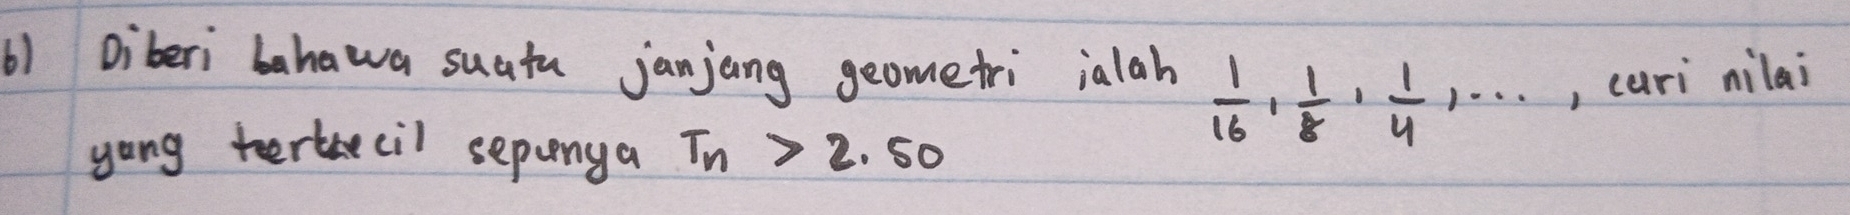 b) Diberi bahawa suatu janjang geometri ialah 1/16, 1/8, 1/4, ..., cari nilai
yang terkecil sepunya Tn > 2.50